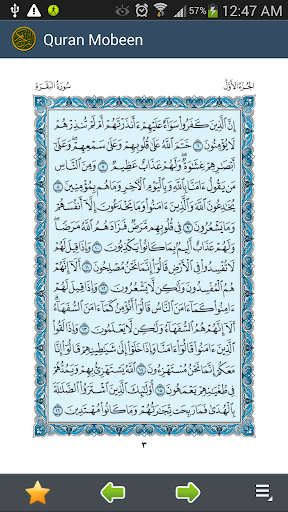 57% 12:47 AM
Quran Mobeen
سُورَةُ البَقَرَة الجُزءُ الأَوَّلُ
إِنَّ ٱلَّذِينَ كَفَرُوا۟ سَوَآءٌ عَلَيْهِمْ ءَأَنذَرْتَهُمْ أَمْ لَمْ تُنذِرْهُمْ
لَا يُؤْمِنُونَ ٦ خَتَمَ ٱللَّهُ عَلَىٰ قُلُوبِهِمْ وَعَلَىٰ سَمْعِهِمْ وَعَلَىٰ
أَبْصَٰرِهِمْ غِشَٰوَةٌ وَلَهُمْ عَذَابٌ عَظِيمٌ ٧ وَمِنَ ٱلنَّاسِ
مَن يَقُولُ ءَامَنَّا بِٱللَّهِ وَبِٱلْيَوْمِ ٱلْءَاخِرِ وَمَا هُم بِمُؤْمِنِينَ ٨
يُخَٰدِعُونَ ٱللَّهَ وَٱلَّذِينَ ءَامَنُوا۟ وَمَا يَخْدَعُونَ إِلَّآ أَنفُسَهُمْ
وَمَا يَشْعُرُونَ ٩ فِى قُلُوبِهِم مَّرَضٌ فَزَادَهُمُ ٱللَّهُ مَرَضًا
وَلَهُمْ عَذَابٌ أَلِيمٌۢ بِمَا كَانُوا۟ يَكْذِبُونَ ١٠ وَإِذَا قِيلَ لَهُمْ
لَا تُفْسِدُوا۟ فِى ٱلْأَرْضِ قَالُوٓا۟ إِنَّمَا نَحْنُ مُصْلِحُونَ ١١ أَلَآ إِنَّهُمْ
هُمُ ٱلْمُفْسِدُونَ وَلَٰكِن لَّا يَشْعُرُونَ ١٢ وَإِذَا قِيلَ لَهُمْ
ءَامِنُوا۟ كَمَآ ءَامَنَ ٱلنَّاسُ قَالُوٓا۟ أَنُؤْمِنُ كَمَآ ءَامَنَ ٱلسُّفَهَآءُ
أَلَآ إِنَّهُمْ هُمُ ٱلسُّفَهَآءُ وَلَٰكِن لَّا يَعْلَمُونَ ١٣ وَإِذَا لَقُوا۟
ٱلَّذِينَ ءَامَنُوا۟ قَالُوٓا۟ ءَامَنَّا وَإِذَا خَلَوْا۟ إِلَىٰ شَيَٰطِينِهِمْ قَالُوٓا۟ إِنَّا
مَعَكُمْ إِنَّمَا نَحْنُ مُسْتَهْزِءُونَ ١٤ ٱللَّهُ يَسْتَهْزِئُ بِهِمْ وَيَمُدُّهُمْ
فِى طُغْيَٰنِهِمْ يَعْمَهُونَ ١٥ أُو۟لَٰٓئِكَ ٱلَّذِينَ ٱشْتَرَوُا۟ ٱلضَّلَٰلَةَ
بِٱلْهُدَىٰ فَمَا رَبِحَت تِّجَٰرَتُهُمْ وَمَا كَانُوا۟ مُهْتَدِينَ ١٦
٣